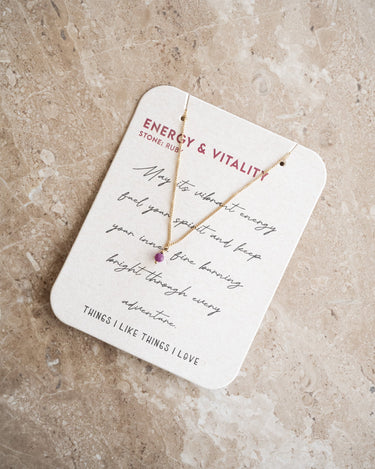 ENERGY & VITALITY
STONE: RUBY
May its vibrant energy
fuel your spirit and keep
your inner fire burning
bright through every
adventure.
THINGS I LIKE THINGS I LOVE